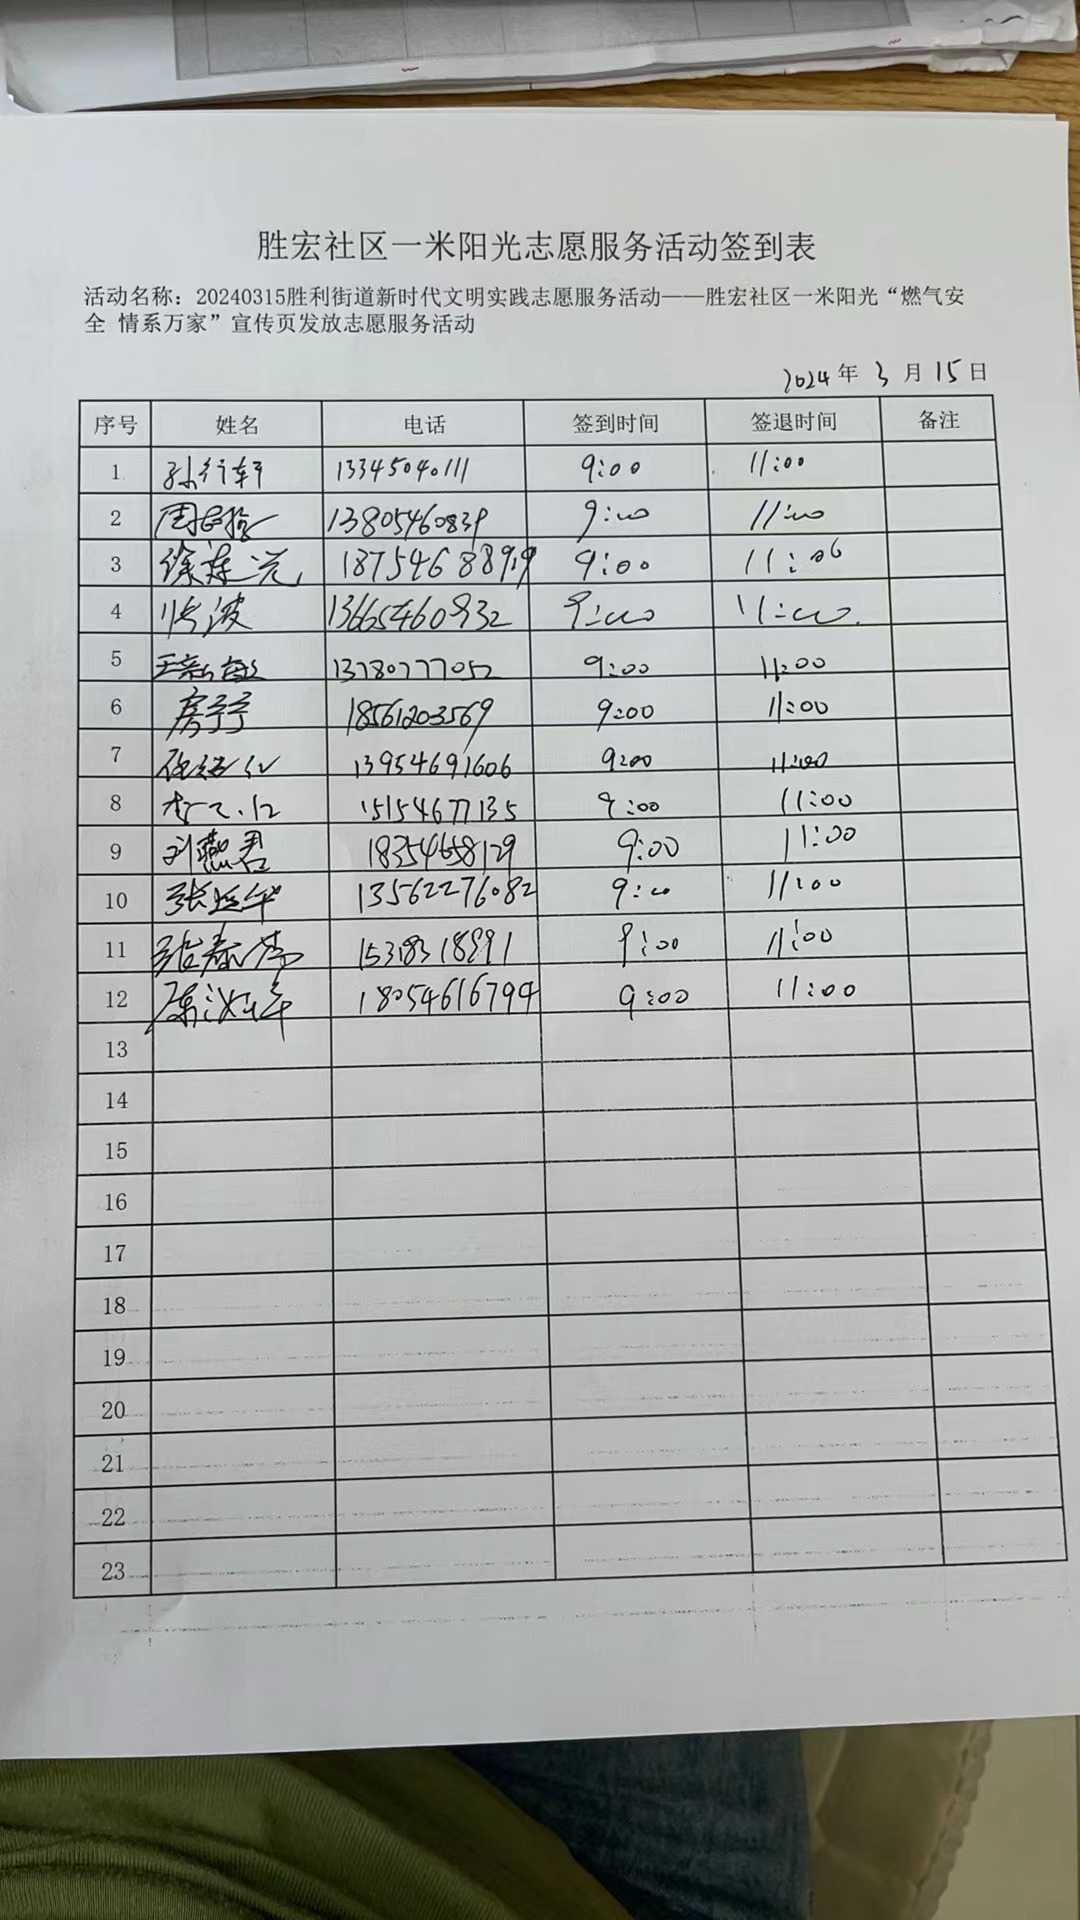 胜宏社区一米阳光志愿服务活动签到表
活动名称：20240315胜利街道新时代文明实践志愿服务活动——胜宏社区一米阳光“燃气安
全 情系万家”宣传页发放志愿服务活动
2024年 3 月 15日
序号 姓名 电话 签到时间 签退时间 备注
1 孙行轩 13345040111 9:00 11:00
2 13805460839 9:00 11:00
3 徐莲元 18754688919 9:00 11:06
4 张波 13665460932 9:00 11:00
5 13780777052 9:00 11:00
6 房宁宁 18561203569 9:00 11:00
7 13954691606 9:00 11:00
8 15154677135 9:00 11:00
9 刘燕君 18354658129 9:00 11:00
10 张延华 13562276082 9:00 11:00
11 张春 15318318991 9:00 11:00
12 18054616794 9:00 11:00
13
14
15
16
17
18
19
20
21
22
23